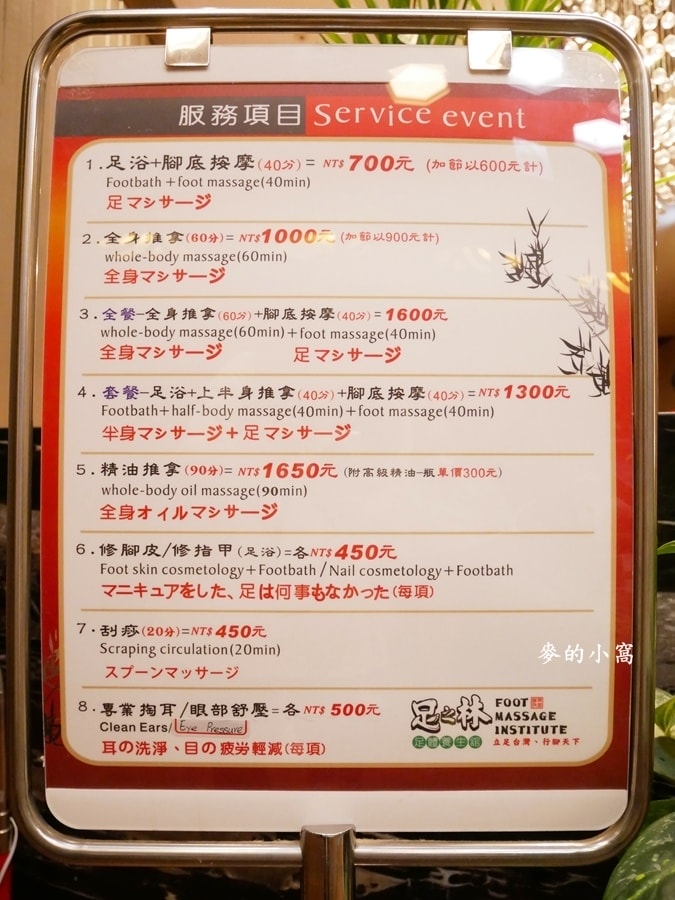 服務項目 Service event
1.足浴+腳底按摩(40分)= NT$700元 (加節以600元計)
Footbath+foot massage(40min)
足マシサージ
2.全身推拿(60分)=NT$1000元(加節以900元計)
whole-body massage(60min)
全身マシサージ
3.全餐-全身推拿(60分)+腳底按摩(40分)=1600元
whole-body massage(60min)+foot massage(40min)
全身マシサージ 足マシサージ
4.套餐-足浴+上半身推拿(40分)+腳底按摩(40分)=NT$1300元
Footbath+half-body massage(40min)+foot massage(40min)
半身マシサージ+足マシサージ
5.精油推拿(90分)= NT$1650元(附高級精油一瓶單價300元)
whole-body oil massage(90min)
全身オィルマシサージ
6.修腳皮/修指甲(足浴)=各NT$450元
Foot skin cosmetology+Footbath/Nail cosmetology+Footbath
マニキュアをした、足は何事もなかった(每項)
7.刮痧(20分)=NT$450元
Scraping circulation(20min)
スプーンマッサージ
8.專業掏耳/眼部舒壓=各 NT$500元
Clean Ears/Eye Pressure
耳の洗淨、目の疲労軽減(每項)
足之林 FOOT MASSAGE INSTITUTE
足體養生館 立足台灣、行腳天下
麥的小窩